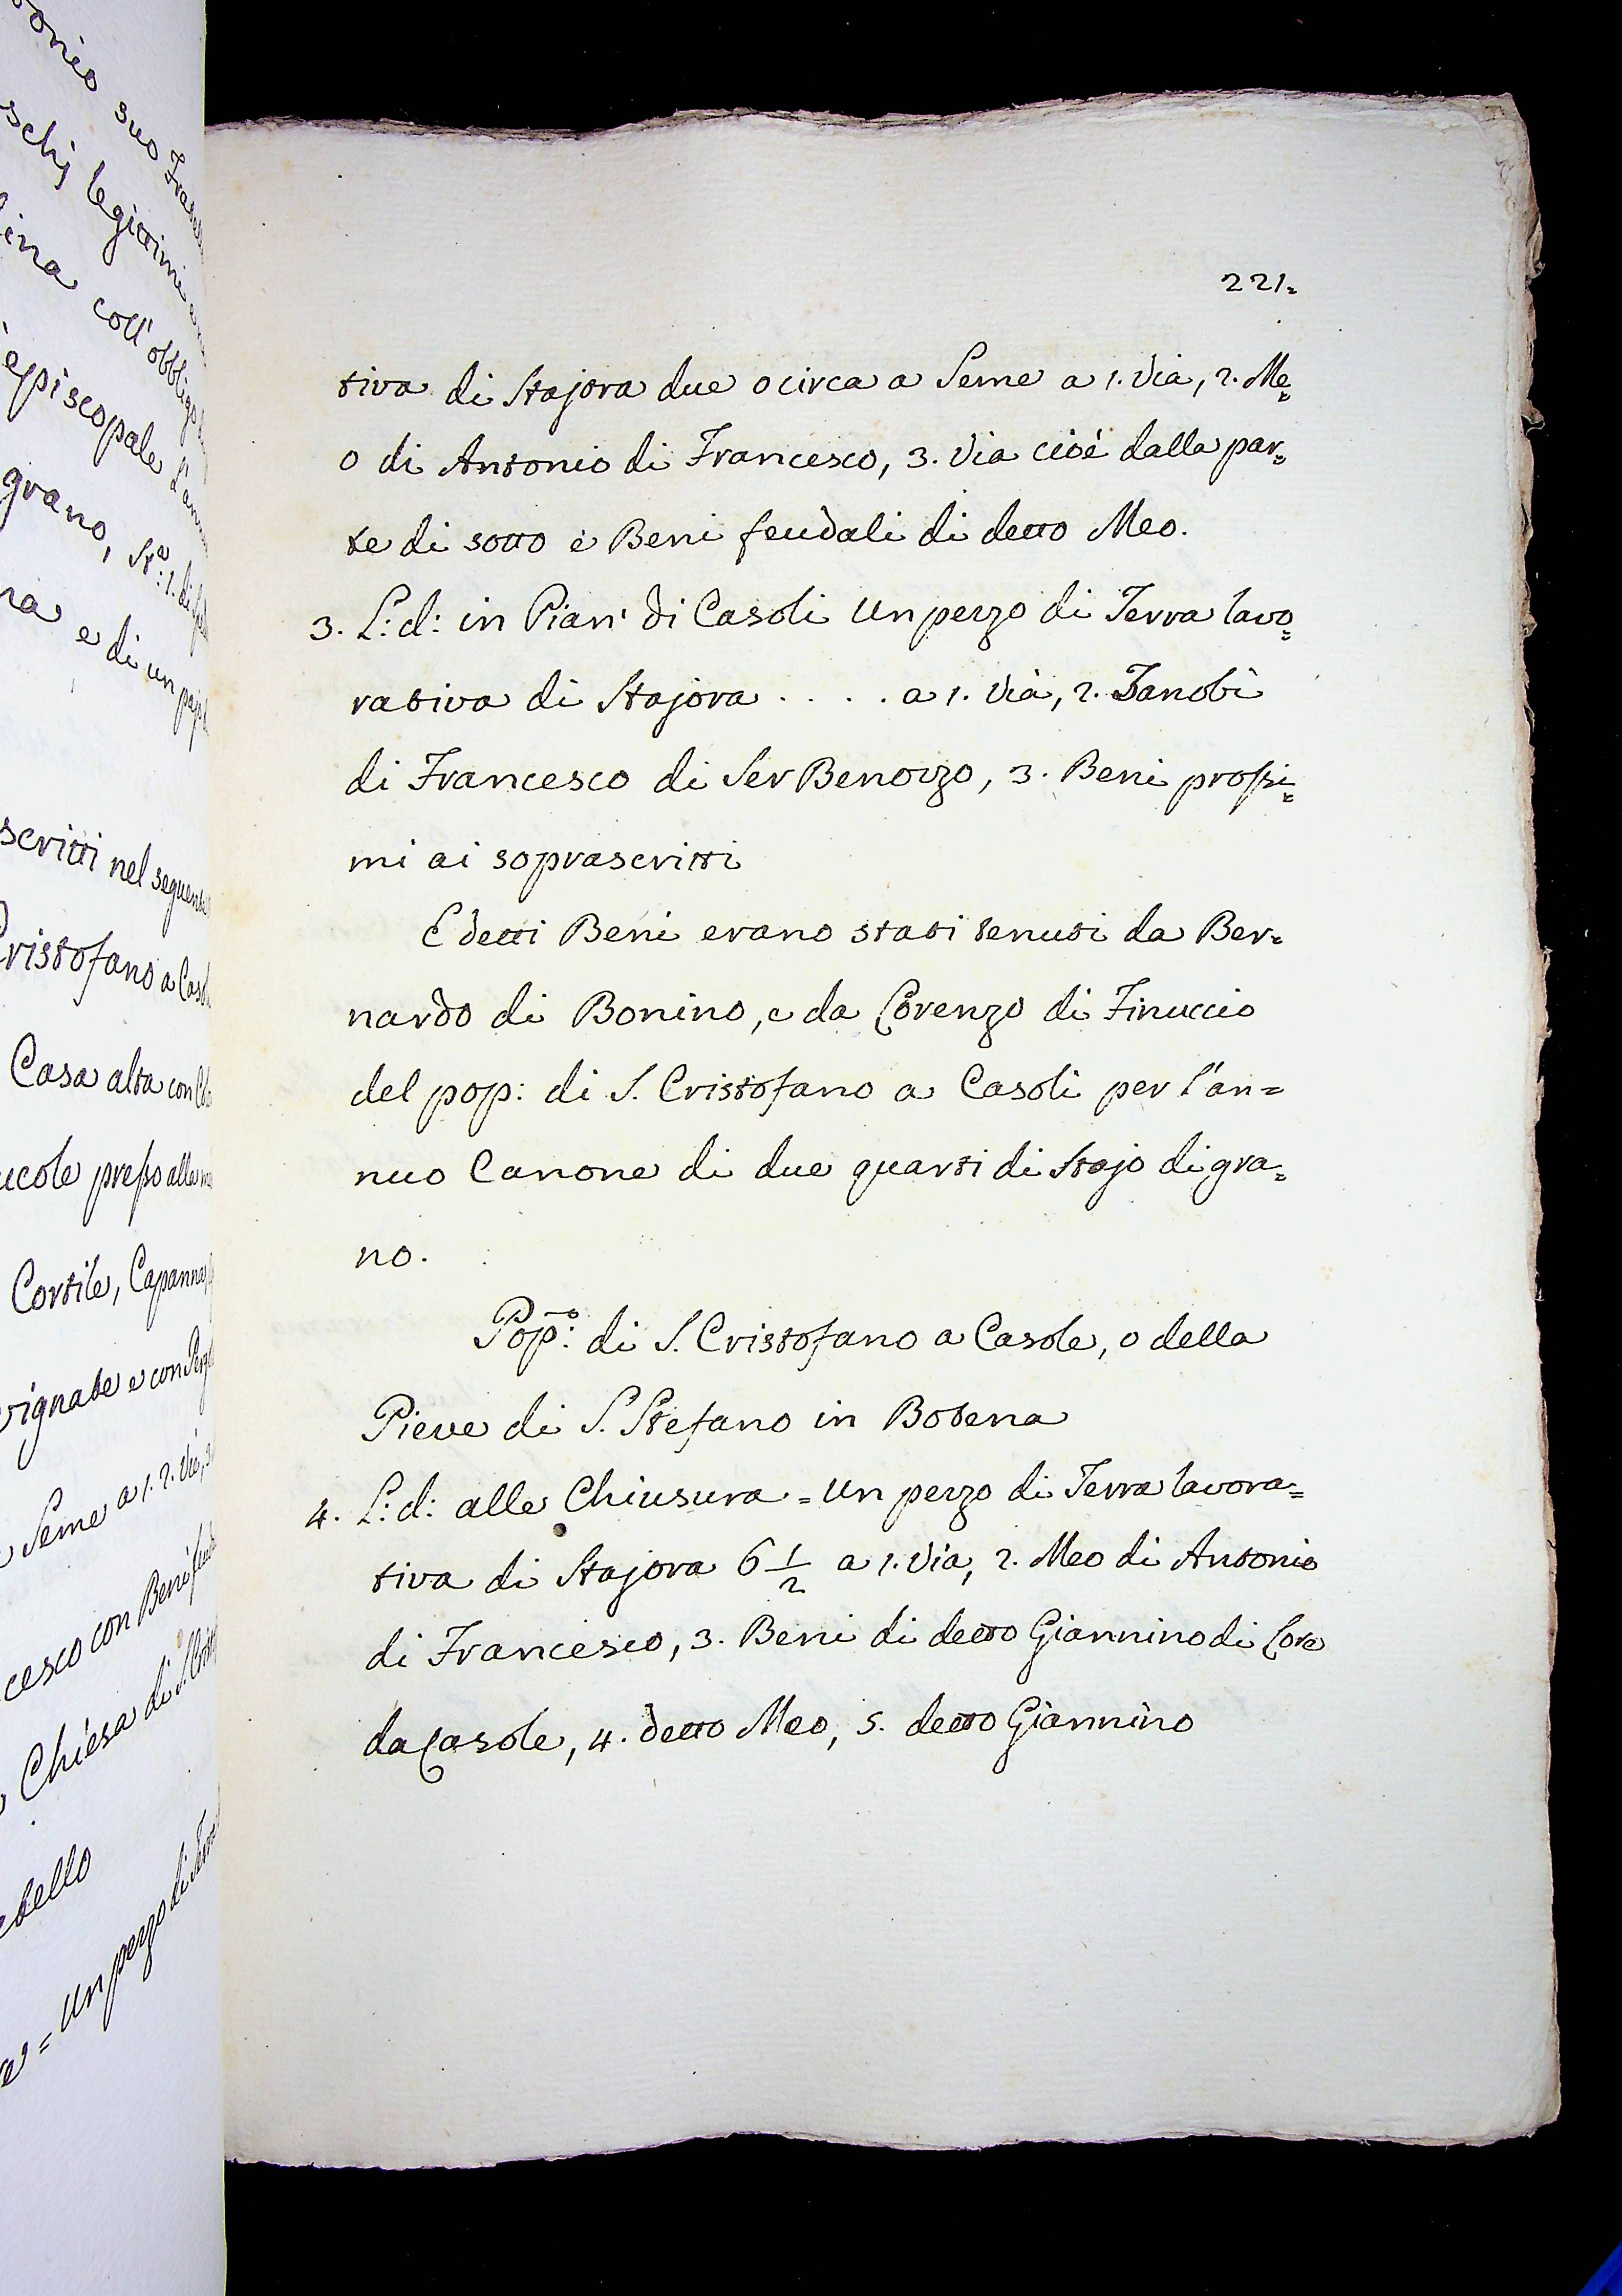 221.
tiva di Stajora due o circa a Seme a 1. Via, 2. Me=
o di Antonio di Francesco, 3. Via cioè dalla par=
te di sotto è Beni feudali di detto Meo.
3. L: d: in Pian' di Casoli un pezzo di Terra lavo=
rativa di Stajora . . . . a 1. Via, 2. Zanobi
di Francesco di Ser Benozzo, 3. Beni prossi=
mi ai soprascritti
E detti Beni erano stati tenuti da Ber=
nardo di Bonino, e da Lorenzo di Finuccio
del pop: di S. Cristofano a Casoli per l'an=
nuo Canone di due quarti di Stajo di gra=
no.
Pop.º: di S. Cristofano a Casole, o della
Pieve di S. Stefano in Botena
4. L: d: alle Chiusura = un pezzo di Terra lavora=
tiva di Stajora 6 1/2 a 1. Via, 2. Meo di Antonio
di Francesco, 3. Beni di detto Giannino di Core
da Casole, 4. detto Meo, 5. detto Giannino
onio suo
schi legittimi
ina coll'obbligo
episcopale l'an
grano, St.ª: 1. di
na e di un
scritti nel seguente
Cristofano a Casol
Casa alta con
ucole presso alla
Cortile, Capanna
vignate e con
Seme a 1. 2. Via,
cesco con Beni
Chiesa di S.
stello
= un pezzo di